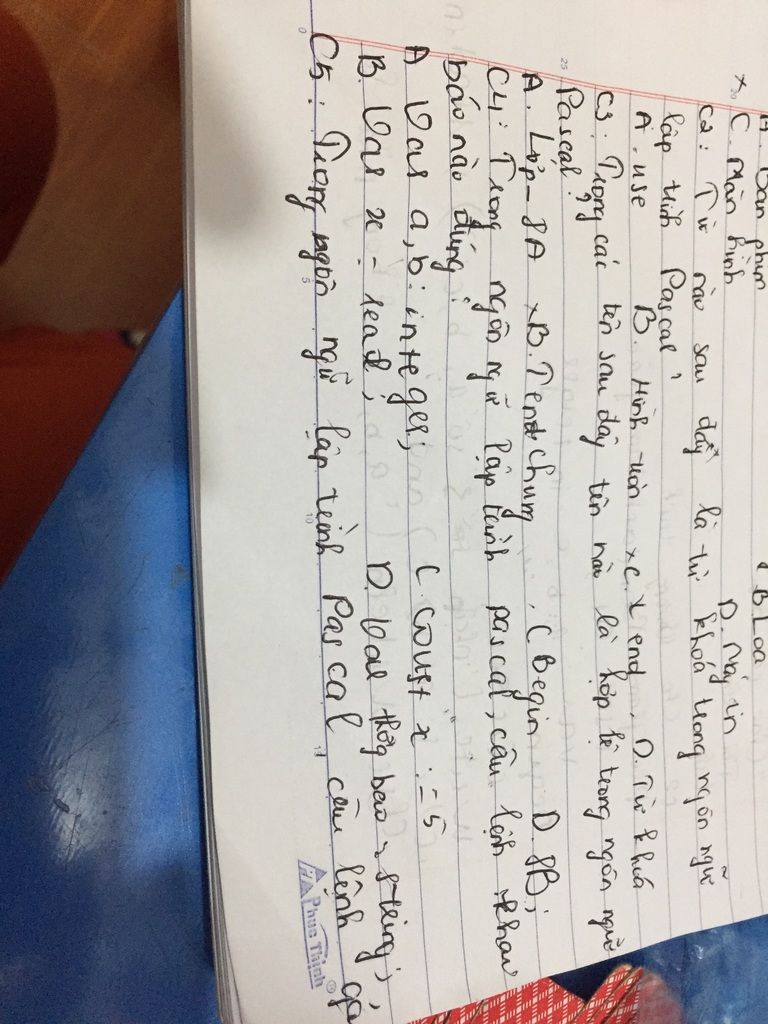 A. Bàn phím B. Loa
x C. Màn hình D. Máy in
C2: Từ nào sau đây là từ khoá trong ngôn ngữ
lập trình Pascal?
A. use B. Hình tròn xC. end, D. Từ khoá
C3: Trong các tên sau đây tên nào là hợp lệ trong ngôn ngữ
Pascal?
A. Lớp-8A xB. Tendchung, C Begin D. 8B;
C4: Trong ngôn ngữ lập trình pascal, câu lệnh khai
báo nào đúng?
A Var a,b: integer; C. Const x := 5
B. Var x = real; D. Var thông báo = string;
C5: Trong ngôn ngữ lập trình Pascal câu lệnh
Phuc Thinh ®
20
25
0 5 10